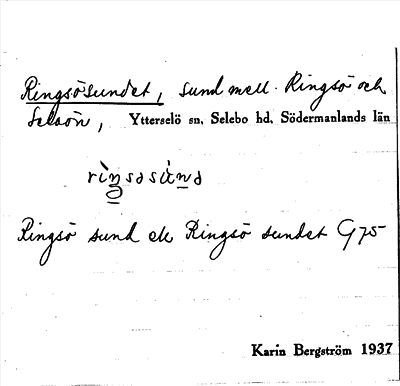 Ringsösundet, sund mell. Ringsö och
Selaön, Ytterselö sn, Selebo hd, Södermanlands län
Ringsö sund el. Ringsö sundet G 75
Karin Bergström 1937